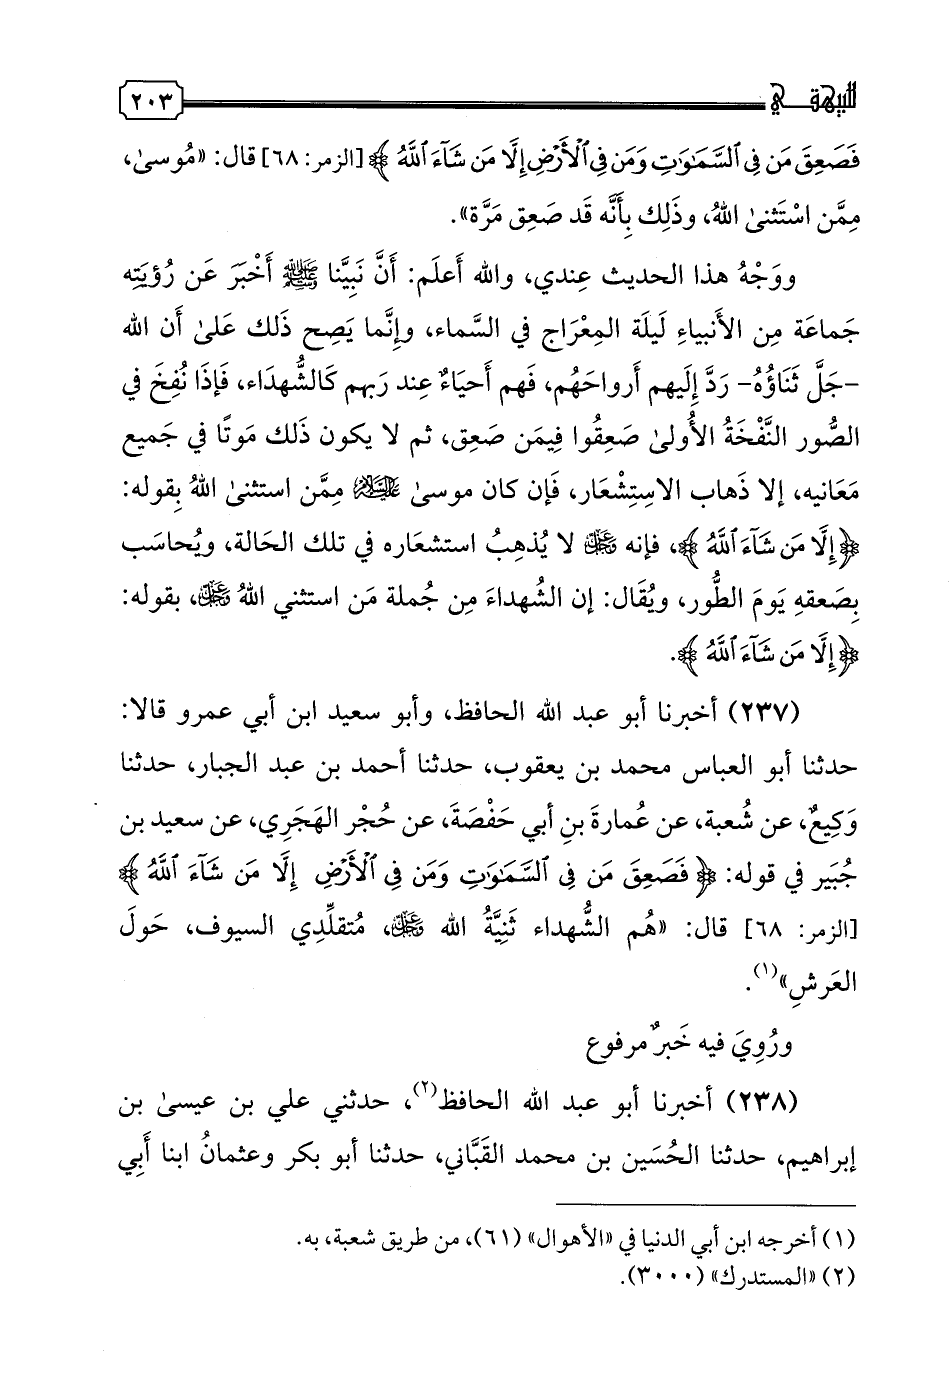 للبيهقي ٢٠٣
فَصَعِقَ مَن فِي ٱلسَّمَٰوَٰتِ وَمَن فِي ٱلْأَرْضِ إِلَّا مَن شَآءَ ٱللَّهُ ﴾ [الزمر: ٦٨] قال: «مُوسىٰ،
مِمَّن اسْتَثنىٰ اللهُ، وذَلِك بِأَنَّه قَد صَعِق مَرَّة».
ووَجْهُ هذا الحديث عِندي، والله أَعلَم: أَنَّ نَبِيَّنا ﷺ أَخْبَرَ عَن رُؤيَتِه
جَماعَة مِن الأَنبياءِ لَيلَة المِعْرَاج في السَّماء، وإِنَّما يَصِح ذَلك عَلىٰ أَن الله
-جَلَّ ثَنَاؤُهُ- رَدَّ إِلَيهم أَرواحَهُم، فَهم أَحيَاءٌ عِند رَبهم كَالشُّهدَاء، فَإِذَا نُفِخَ في
الصُّور النَّفْخَةُ الأُولىٰ صَعِقُوا فِيمَن صَعِق، ثم لا يكون ذَلك مَوتًا في جَميع
مَعَانيه، إلا ذَهاب الاسِتِشْعَار، فَإن كان موسىٰ عَلَيْهِ السَّلَامُ ممَّن استثنىٰ اللهُ بِقوله:
﴿إِلَّا مَن شَآءَ ٱللَّهُ ﴾، فإنه عَزَّ وَجَلَّ لا يُذهِبُ استشعَاره في تلك الحَالة، ويُحاسَب
بِصَعقهِ يَومَ الطُّور، ويُقَال: إن الشُّهداءَ مِن جُملة مَن استثني اللهُ عَزَّ وَجَلَّ، بقوله:
﴿إِلَّا مَن شَآءَ ٱللَّهُ ﴾.
(٢٣٧) أخبرنا أبو عبد الله الحافظ، وأبو سعيد ابن أبي عمرو قالا:
حدثنا أبو العباس محمد بن يعقوب، حدثنا أحمد بن عبد الجبار، حدثنا
وَكِيعٌ، عن شُعبة، عن عُمارةَ بنِ أبي حَفْصَةَ، عن حُجْر الهَجَرِي، عن سعيد بن
جُبَير في قوله: ﴿فَصَعِقَ مَن فِي ٱلسَّمَٰوَٰتِ وَمَن فِي ٱلْأَرْضِ إِلَّا مَن شَآءَ ٱللَّهُ ﴾
[الزمر: ٦٨] قال: «هُم الشُّهداء ثَنِيَّةُ الله عَزَّ وَجَلَّ، مُتقلِّدِي السيوف، حَولَ
العَرشِ»(١).
ورُوِيَ فيه خَبرٌ مرفوع
(٢٣٨) أخبرنا أبو عبد الله الحافظ(٢)، حدثني علي بن عيسىٰ بن
إبراهيم، حدثنا الحُسَين بن محمد القَبَّاني، حدثنا أبو بكر وعثمانُ ابنا أَبِي
(١) أخرجه ابن أبي الدنيا في «الأهوال» (٦١)، من طريق شعبة، به.
(٢) «المستدرك» (٣٠٠٠).